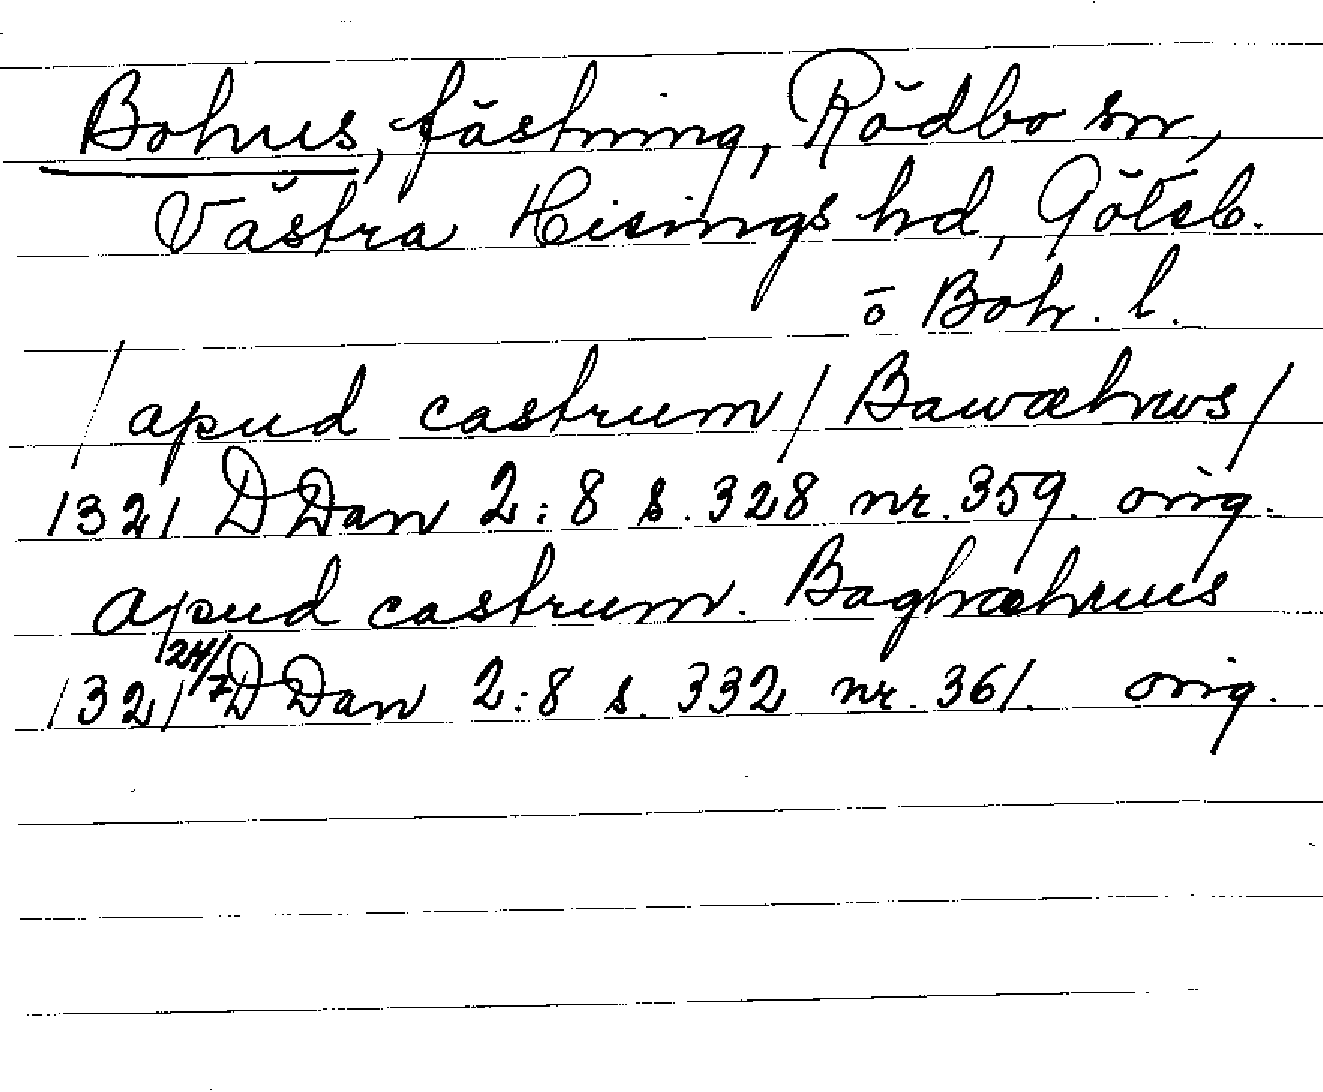 Bohus, fästning, Rödbo sn,
Västra Hisings hd, Göteb.
o Boh. l.
/apud castrum/ Bawæhws/
1321 DDan 2:8 s. 328 nr. 359. orig.
apud castrum. Baghæhuus
1321 24/7 DDan 2:8 s. 332 nr. 361. orig.